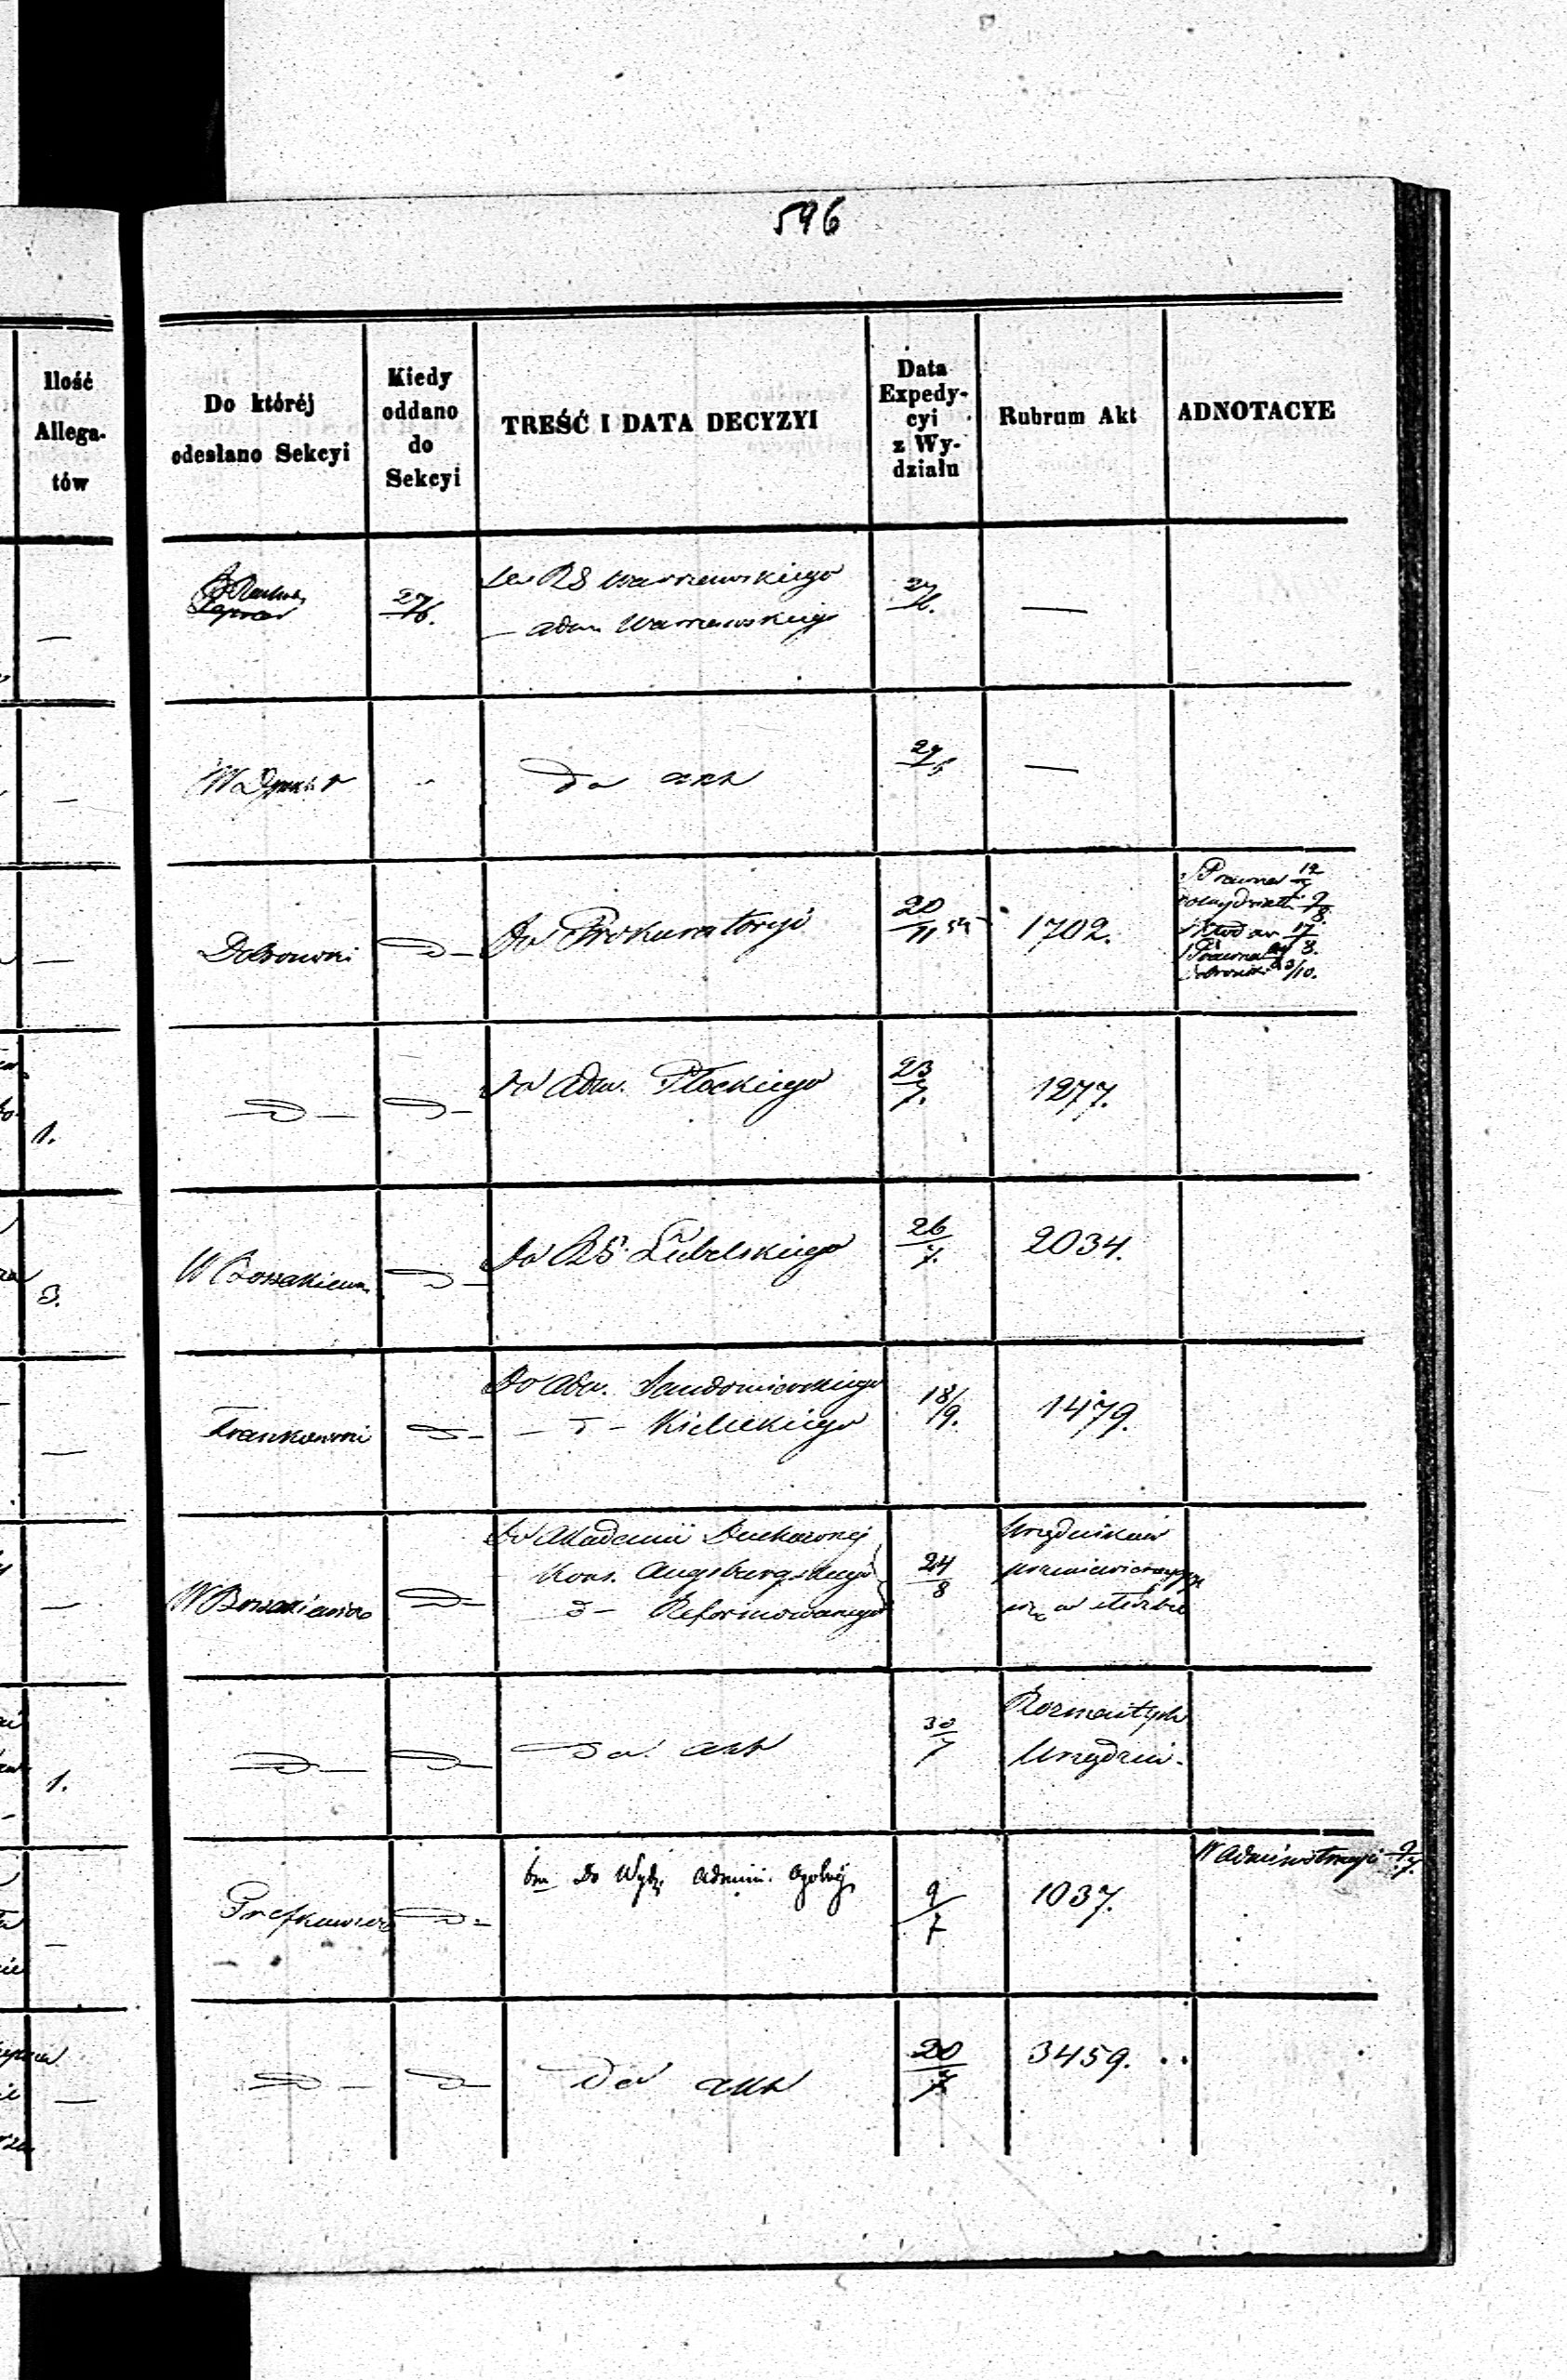 596
Ilość
Allega-
tów
Do któréj
odesłano Sekcyi
Kiedy
oddano
do
Sekcyi
TREŚĆ I DATA DECYZYI
Data
Expedy-
cyi
z Wy-
działu
Rubrum Akt
ADNOTACYE
27/6.
RS Warszewskiego
— adm Warszewskiego
27/6.
—
—
Do akt
29/6
—
—
Dobrowski
—D—
Do Prokuratoryi
20/11 54
1702.
Prawna 12/7
9/8.
17/8.
Prawna
23/10.
—
—D—
—D—
Do Adm. Płockiego
23/7.
1277.
1.
W Bossakiewicz
—D—
Do RS. Lubelskiego
26/7.
2034.
3.
Frankowski
—D—
Do Adm. Sandomierskiego
— D — Kieleckiego
18/9.
1479.
—
W Bossakiewicz
—D—
Do Akademii Duchownej
Kons. Augsburgskiego
— D — Reformowanego
24/8
Urzędników
—
—D—
—D—
Do akt
30/7
Rozmaitych
Urzędzin.
1.
—D—
bm Do Wydz. Admini. Ogolnej
9/7
1037.
W Administracyi 9/7.
—
—D—
—D—
Do akt
20/7
3459.
—